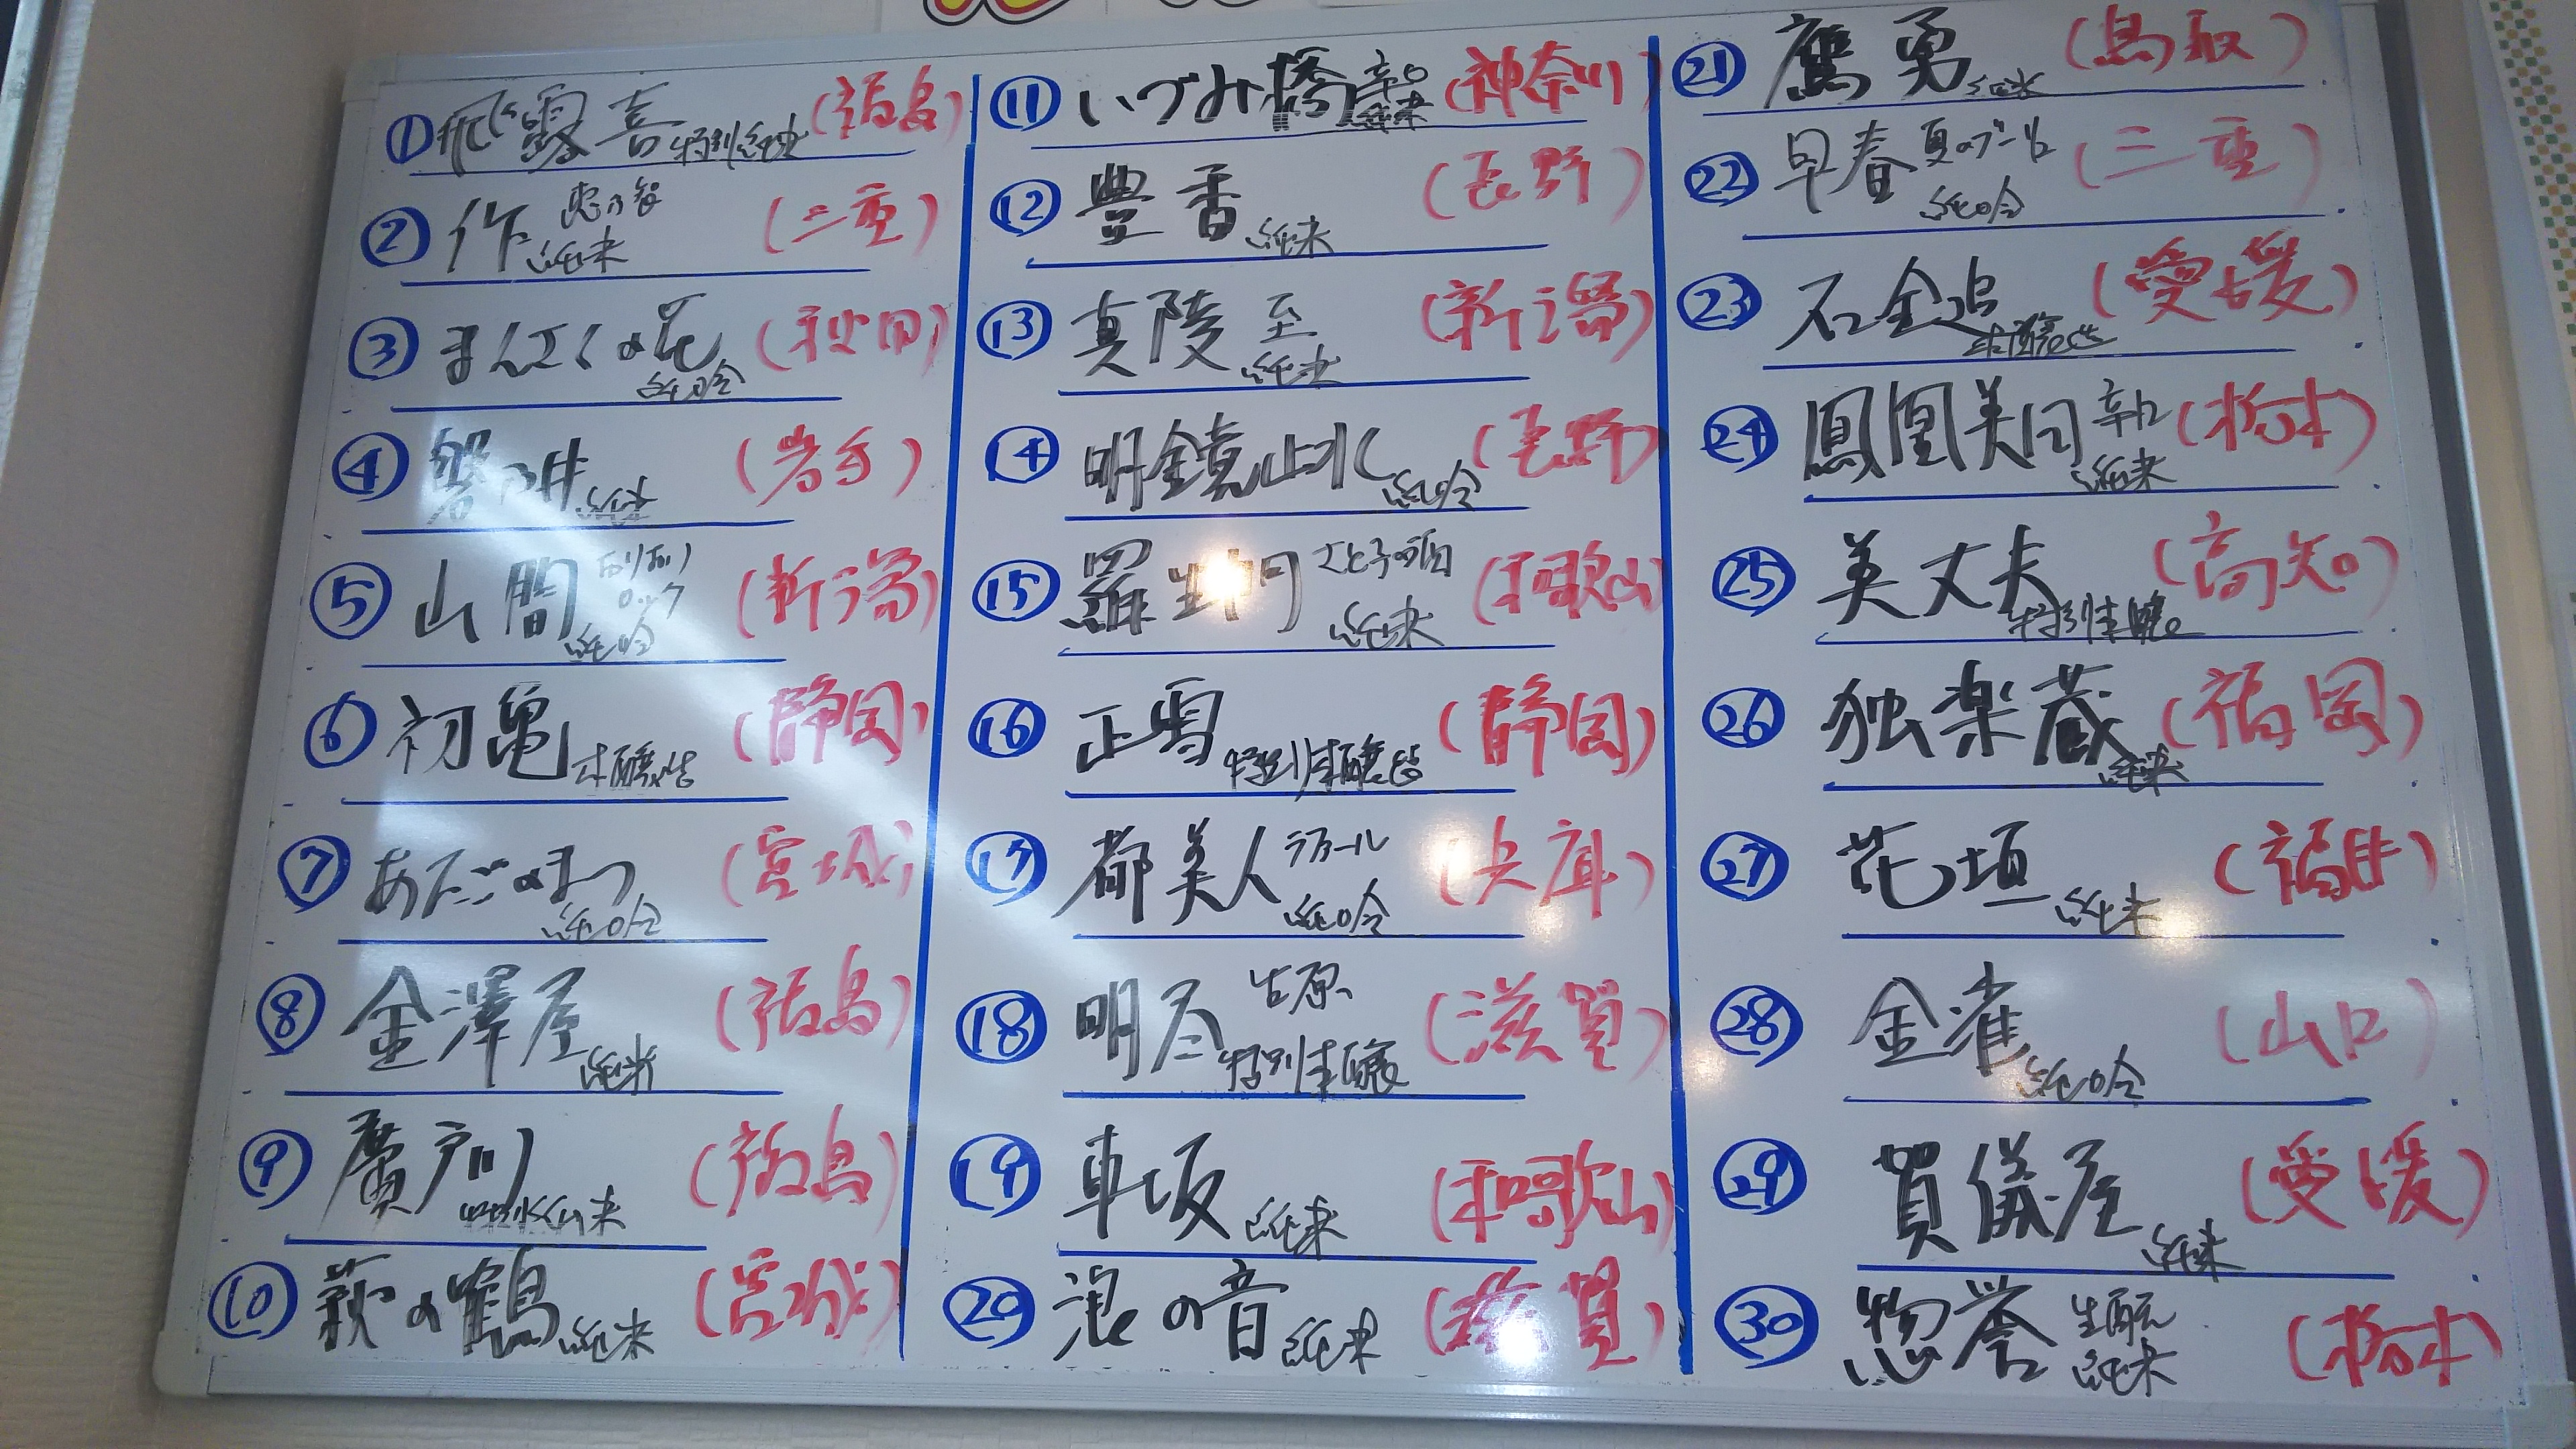 ① 飛露喜 特別純米 (福島)
② 作 恵乃智 純米 (三重)
③ まんさくの花 純吟 (秋田)
④ 磐乃井 純米 (岩手)
⑤ 山間 ロック 純吟 (新潟)
⑥ 初亀 本醸造 (静岡)
⑦ あたごのまつ 純吟 (宮城)
⑧ 金澤屋 純米 (福島)
⑨ 廣戸川 純米 (福島)
⑩ 萩の鶴 純米 (宮城)
⑪ いづみ橋 純米 (神奈川)
⑫ 豊香 純米 (長野)
⑬ 真陵 至 純米 (新潟)
⑭ 明鏡止水 純吟 (長野)
⑮ 羅生門 さと子の酒 純米 (和歌山)
⑯ 正雪 特別本醸造 (静岡)
⑰ 都美人 ラガール 純吟 (兵庫)
⑱ 明尽 生原 特別本醸 (滋賀)
⑲ 車坂 純米 (和歌山)
⑳ 浪の音 純米 (滋賀)
㉑ 鷹勇 純米 (鳥取)
㉒ 早春 夏のブール 純吟 (三重)
㉓ 石金追 本醸造 (愛媛)
㉔ 鳳凰美田 純米 (栃木)
㉕ 美丈夫 特別本醸 (高知)
㉖ 独楽蔵 純米 (福岡)
㉗ 花垣 純米 (福井)
㉘ 金雀 純吟 (山口)
㉙ 賀儀屋 純米 (愛媛)
㉚ 惣誉 生酛 純米 (栃木)